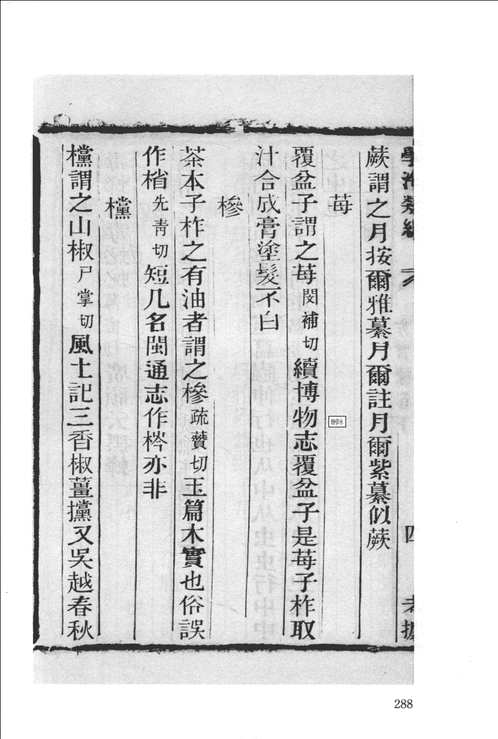 蕨謂之月按爾雅藄月爾註月爾紫藄似蕨
苺
覆盆子謂之苺閔補切續博物志覆盆子是苺子柞取
汁合成膏塗髮不白
槮
茶本子柞之有油者謂之槮疏贊切玉篇木實也俗誤
作楕先靑切短几名閩通志作梣亦非
欓
欓謂之山椒尸掌切風土記三香椒薑欓又吳越春秋
288